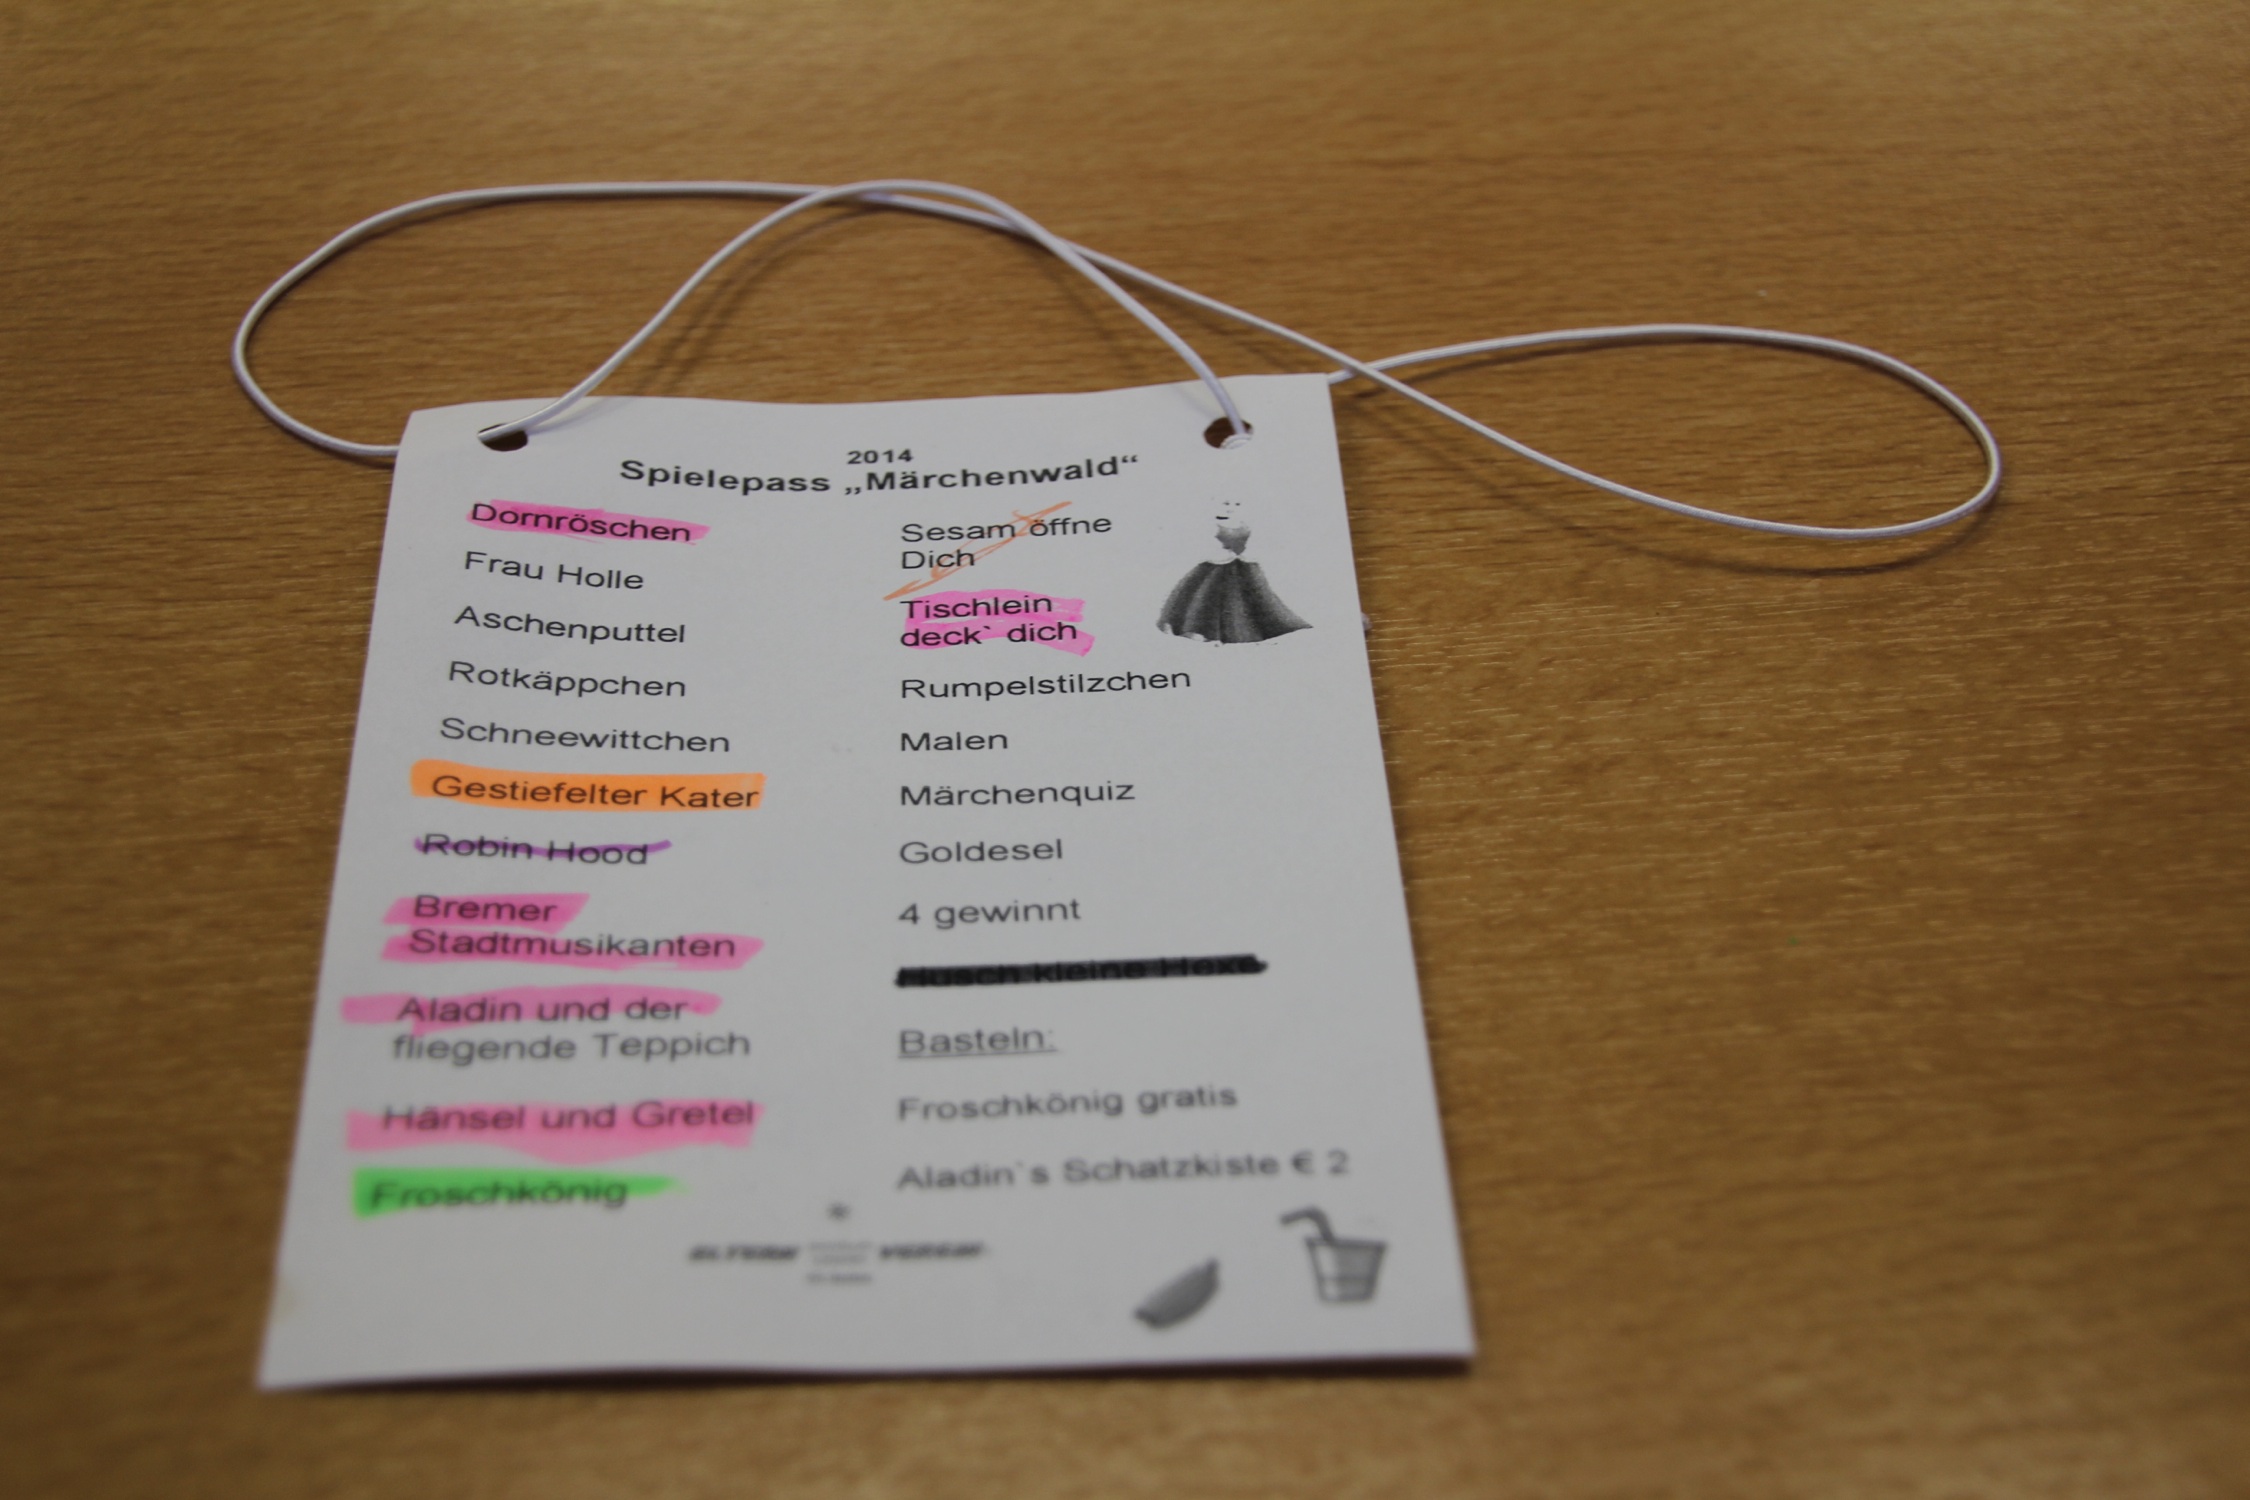 2014
Spielepass „Märchenwald“
Dornröschen
Frau Holle
Aschenputtel
Rotkäppchen
Schneewittchen
Gestiefelter Kater
Robin Hood
Bremer
Stadtmusikanten
Aladin und der
fliegende Teppich
Hänsel und Gretel
Froschkönig
Sesam öffne
Dich
Tischlein
deck` dich
Rumpelstilzchen
Malen
Märchenquiz
Goldesel
4 gewinnt
Husch kleine Hexe
Basteln:
Froschkönig gratis
Aladin`s Schatzkiste € 2
ELTERN VEREIN